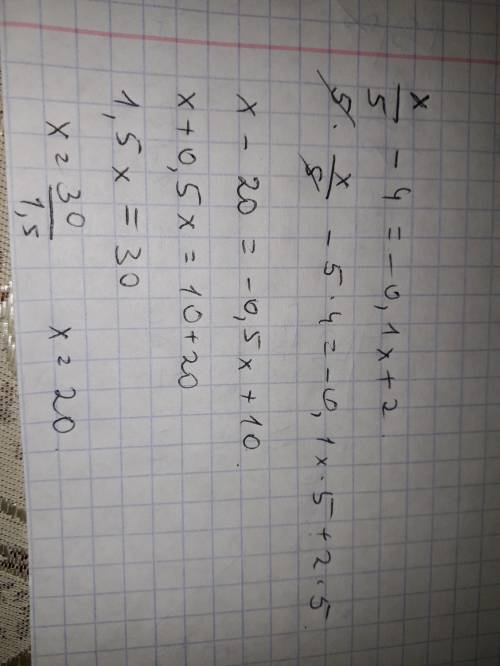 x/5 - 4 = -0,1x + 2
5 · x/5 - 5 · 4 = -0,1x · 5 + 2 · 5
x - 20 = -0,5x + 10.
x + 0,5x = 10 + 20
1,5x = 30
x = 30/1,5 x = 20.